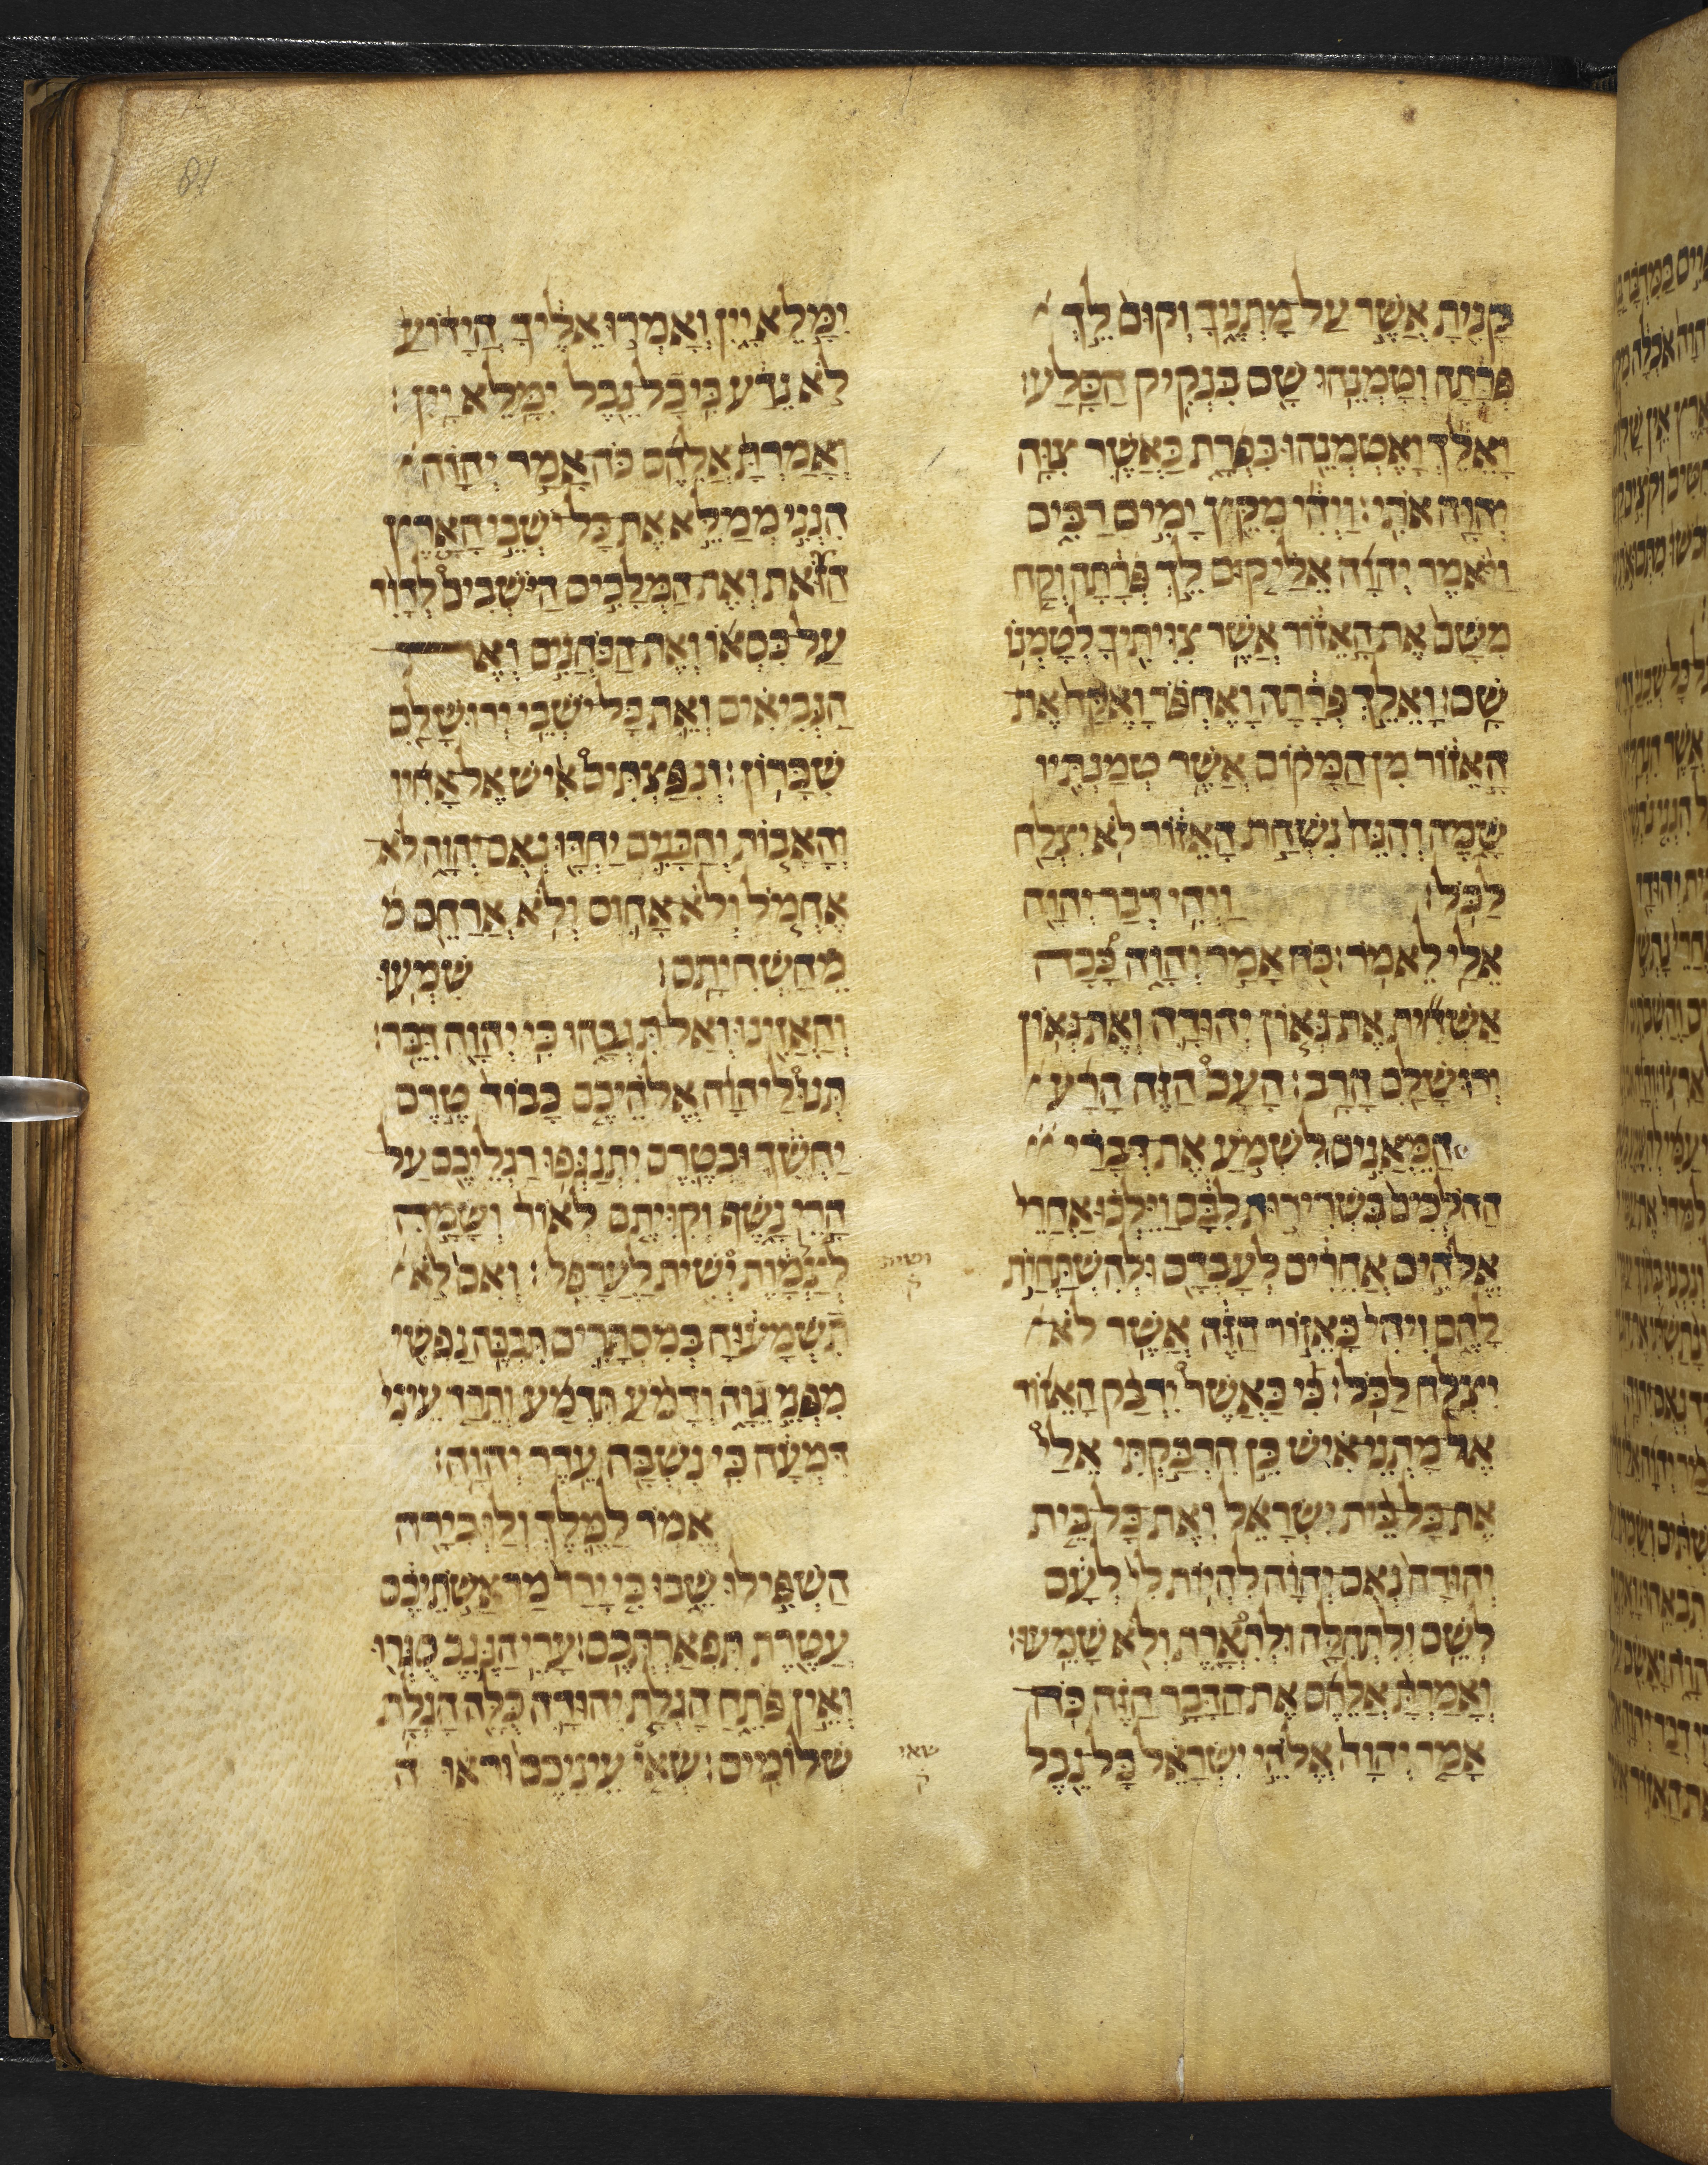 קָנִיתָ אֲשֶׁר עַל מָתְנֶיךָ וְקוּם לֵךְ
פְּרָתָה וְטָמְנֵהוּ שָׁם בִּנְקִיק הַסָּלַע׃
וָאֵלֵךְ וָאֶטְמְנֵהוּ בִּפְרָת כַּאֲשֶׁר צִוָּה
יְהוָה אֹתִי׃ וַיְהִי מִקֵּץ יָמִים רַבִּים
וַיֹּאמֶר יְהוָה אֵלַי קוּם לֵךְ פְּרָתָה וְקַח
מִשָּׁם אֶת הָאֵזוֹר אֲשֶׁר צִוִּיתִיךָ לְטָמְנוֹ
שָׁם׃ וָאֵלֵךְ פְּרָתָה וָאֶחְפֹּר וָאֶקַּח אֶת
הָאֵזוֹר מִן הַמָּקוֹם אֲשֶׁר טְמַנְתִּיו
שָׁמָּה וְהִנֵּה נִשְׁחַת הָאֵזוֹר לֹא יִצְלַח
לַכֹּל׃ וַיְהִי דְבַר יְהוָה
אֵלַי לֵאמֹר׃ כֹּה אָמַר יְהוָה כָּכָה
אַשְׁחִית אֶת גְּאוֹן יְהוּדָה וְאֶת גְּאוֹן
יְרוּשָׁלִַם הָרָב׃ הָעָם הַזֶּה הָרָע
הַמֵּאֲנִים לִשְׁמֹעַ אֶת דְּבָרַי
הַהֹלְכִים בִּשְׁרִירוּת לִבָּם וַיֵּלְכוּ אַחֲרֵי
אֱלֹהִים אֲחֵרִים לְעָבְדָם וּלְהִשְׁתַּחֲוֹת
לָהֶם וִיהִי כָּאֵזוֹר הַזֶּה אֲשֶׁר לֹא
יִצְלַח לַכֹּל׃ כִּי כַּאֲשֶׁר יִדְבַּק הָאֵזוֹר
אֶל מָתְנֵי אִישׁ כֵּן הִדְבַּקְתִּי אֵלַי
אֶת כָּל בֵּית יִשְׂרָאֵל וְאֶת כָּל בֵּית
יְהוּדָה נְאֻם יְהוָה לִהְיוֹת לִי לְעָם
לְשֵׁם וְלִתְהִלָּה וּלְתִפְאָרֶת וְלֹא שָׁמֵעוּ׃
וְאָמַרְתָּ אֲלֵהֶם אֶת הַדָּבָר הַזֶּה כֹּה
אָמַר יְהוָה אֱלֹהֵי יִשְׂרָאֵל כָּל נֵבֶל
יִמָּלֵא יָיִן וְאָמְרוּ אֵלֶיךָ הֲיָדֹועַ
לֹא נֵדַע כִּי כָל נֵבֶל יִמָּלֵא יָיִן׃
וְאָמַרְתָּ אֲלֵהֶם כֹּה אָמַר יְהוָה
הִנְנִי מְמַלֵּא אֶת כָּל יֹשְׁבֵי הָאָרֶץ
הַזֹּאת וְאֶת הַמְּלָכִים הַיֹּשְׁבִים לְדָוִד
עַל כִּסְאוֹ וְאֶת הַכֹּהֲנִים וְאֶת
הַנְּבִיאִים וְאֵת כָּל יֹשְׁבֵי יְרוּשָׁלִָם
שִׁכָּרוֹן׃ וְנִפַּצְתִּים אִישׁ אֶל אָחִיו
וְהָאָבוֹת וְהַבָּנִים יַחְדָּו נְאֻם יְהוָה לֹא
אֶחְמֹל וְלֹא אָחוּס וְלֹא אֲרַחֵם מ
מֵהַשְׁחִיתָם׃ שִׁמְעוּ
וְהַאֲזִינוּ וְאַל תִּגְבָּהוּ כִּי יְהוָה דִּבֵּר׃
תְּנוּ לַיהוָה אֱלֹהֵיכֶם כָּבוֹד טֶרֶם
יַחְשִׁךְ וּבְטֶרֶם יִתְנַגְּפוּ רַגְלֵיכֶם עַל
הָרֵי נָשֶׁף וְקִוִּיתֶם לְאוֹר וְשָׂמָהּ
לְצַלְמָוֶת יְשִׁית לַעֲרָפֶל׃ וְאִם לֹא
ושית
ק
תִשְׁמָעוּהָ בְּמִסְתָּרִים תִּבְכֶּה נַפְשִׁי
מִפְּנֵי גֵוָה וְדָמֹעַ תִּדְמַע וְתֵרַד עֵינִי
דִּמְעָה כִּי נִשְׁבָּה עֵדֶר יְהוָה׃
אֱמֹר לַמֶּלֶךְ וְלַגְּבִירָה
הַשְׁפִּילוּ שֵׁבוּ כִּי יָרַד מַרְאֲשׁוֹתֵיכֶם
עֲטֶרֶת תִּפְאַרְתְּכֶם׃ עָרֵי הַנֶּגֶב סֻגְּרוּ
וְאֵין פֹּתֵחַ הָגְלָת יְהוּדָה כֻּלָּהּ הָגְלָת
שְׁלוֹמִים׃ שְׂאִי עֵינֵיכֶם וּרְאוּ ה
שאו
ק